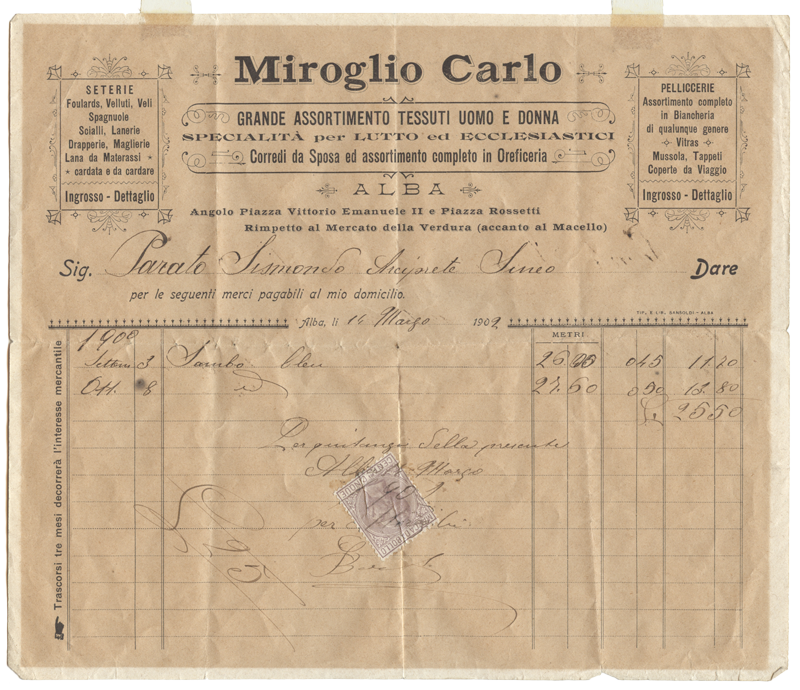 Miroglio Carlo
SETERIE
Foulards, Velluti, Veli
Spagnuole
Scialli, Lanerie
Drapperie, Maglierie
Lana da Materassi
cardata e da cardare
Ingrosso - Dettaglio
GRANDE ASSORTIMENTO TESSUTI UOMO E DONNA
SPECIALITÀ per LUTTO ed ECCLESIASTICI
Corredi da Sposa ed assortimento completo in Oreficeria
PELLICCERIE
Assortimento completo
in Biancheria
di qualunque genere
Vitras
Mussola, Tappeti
Coperte da Viaggio
Ingrosso - Dettaglio
ALBA
Angolo Piazza Vittorio Emanuele II e Piazza Rossetti
Rimpetto al Mercato della Verdura (accanto al Macello)
Sig. Parato Sismondo Arciprete Sineo Dare
per le seguenti merci pagabili al mio domicilio.
TIP. E LIB. SANSOLDI - ALBA
Alba, li 14 Marzo 1902
METRI
1900
3 bleu 045 11.20
Ott. 8 27.60 050 13.80
25.50
Per quitanza della presente
Alba 14 Marzo
per
Trascorsi tre mesi decorrerà l'interesse mercantile